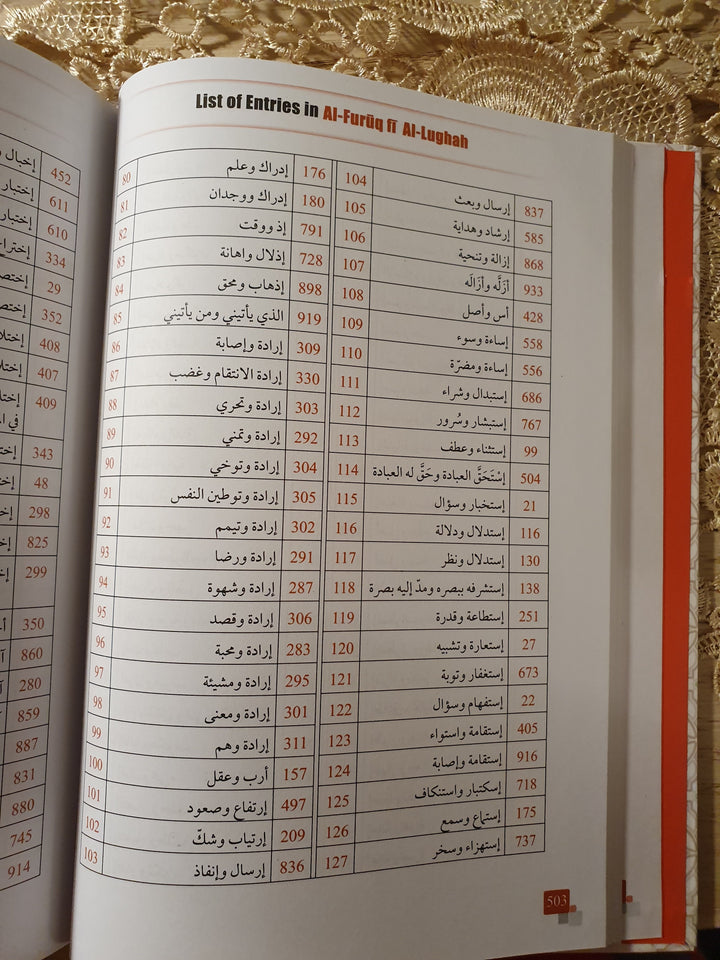 إخبال و 452
إختبار 611
إختبار 610
إختراع 334
29
352
408
407
409
في ا
343
48
298
825
299
350
860
280
859
887
831
880
745
914
List of Entries in Al-Furūq fī Al-Lughah
80 إدراك وعلم 176
81 إدراك ووجدان 180
82 إذ ووقت 791
83 إذلال واهانة 728
84 إذهاب ومحق 898
85 الذي يأتيني ومن يأتيني 919
86 إرادة وإصابة 309
87 إرادة الانتقام وغضب 330
88 إرادة وتحري 303
89 إرادة وتمني 292
90 إرادة وتوخي 304
91 إرادة وتوطين النفس 305
92 إرادة وتيمم 302
93 إرادة ورضا 291
94 إرادة وشهوة 287
95 إرادة وقصد 306
96 إرادة ومحبة 283
97 إرادة ومشيئة 295
98 إرادة ومعنى 301
99 إرادة وهم 311
100 أرب وعقل 157
101 إرتفاع وصعود 497
102 إرتياب وشكّ 209
103 إرسال وإنفاذ 836
104 إرسال وبعث 837
105 إرشاد وهداية 585
106 إزالة وتنحية 868
107 أزلَّه وأزاله 933
108 أس وأصل 428
109 إساءة وسوء 558
110 إساءة ومضرّة 556
111 إستبدال وشراء 686
112 إستبشار وسُرور 767
113 إستثناء وعطف 99
114 إسْتَحَقَّ العبادة وحَقَّ له العبادة 504
115 إستخبار وسؤال 21
116 إستدلال ودلالة 116
117 إستدلال ونظر 130
118 إستشرفه ببصره ومدّ إليه بصرة 138
119 إستطاعة وقدرة 251
120 إستعارة وتشبيه 27
121 إستغفار وتوبة 673
122 إستفهام وسؤال 22
123 إستقامة واستواء 405
124 إستقامة وإصابة 916
125 إسكتبار واستنكاف 718
126 إستماع وسمع 175
127 إستهزاء وسخر 737
503